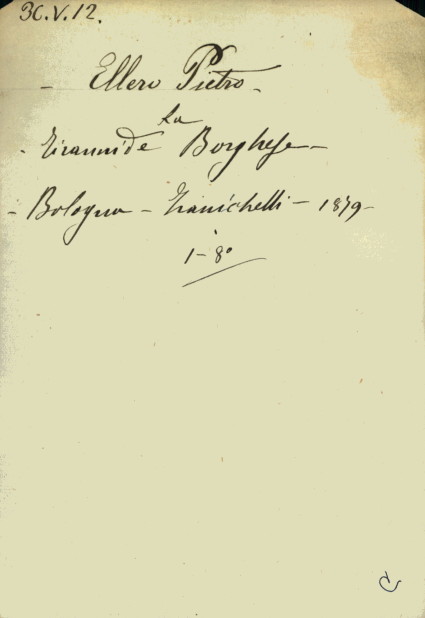 3C.V.12.
- Ellero Pietro -
La
- Tirannide Borghese -
- Bologna - Zanichelli - 1879 -
1-8°
C